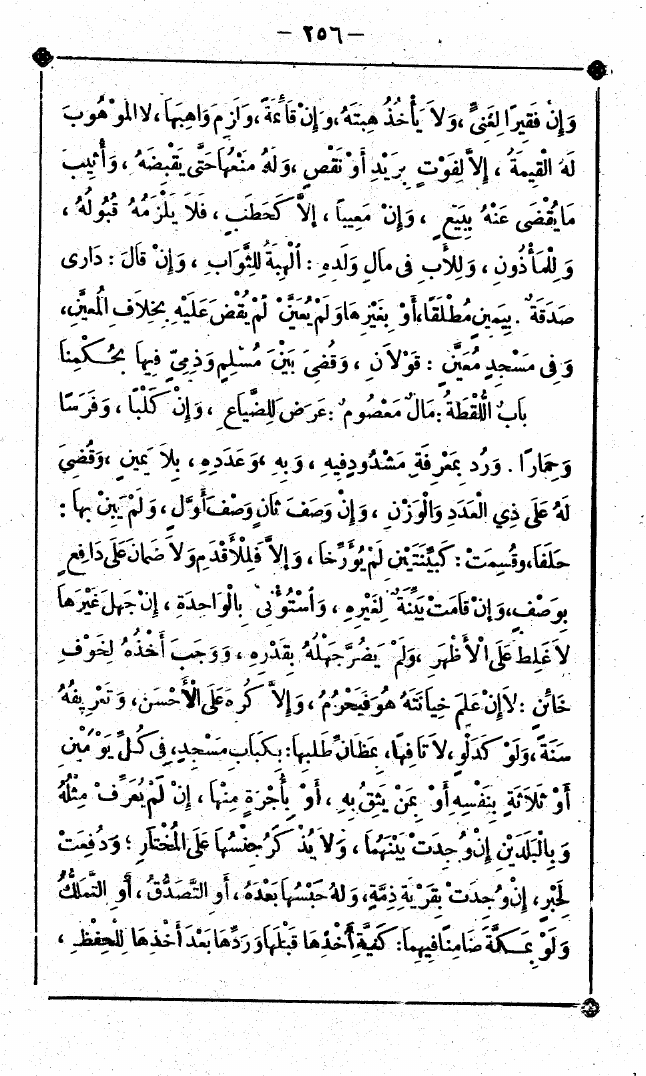 – ٢٥٦ –
وَإِنْ فَقِيرًا لِغَنِيٍّ ، وَلَا يَأْخُذُ هِبَتَهُ ، وَإِنْ قَائِمَةً ، وَلَزِمَ وَاهِبَهَا ، لَا الْمَوْهُوبَ
لَهُ الْقِيمَةُ ، إِلَّا لِفَوْتٍ بِزَيْدٍ أَوْ نَقْصٍ ، وَلَهُ مَنْعُهَا حَتَّى يَقْبِضَهُ ، وَأُثِيبَ
مَا يُقْضَى عَنْهُ بِبَيْعٍ ، وَإِنْ مَعِيبًا ، إِلَّا كَحَطَبٍ ، فَلَا يَلْزَمُهُ قُبُولُهُ ،
وَلِلْمَأْذُونِ ، وَلِلْأَبِ فِى مَالِ وَلَدِهِ : الْهِبَةُ لِلثَّوَابِ ، وَإِنْ قَالَ : دَارِى
صَدَقَةٌ . بِيَمِينٍ مُطْلَقًا ، أَوْ بِغَيْرِهَا وَلَمْ يُعَيِّنْ لَمْ يُقْضَ عَلَيْهِ بِخِلَافِ الْمُعَيَّنِ ،
وَفِى مَسْجِدٍ مُعَيَّنٍ : قَوْلَانِ ، وَقُضِىَ بَيْنَ مُسْلِمٍ وَذِمِّىٍّ فِيهَا بِحُكْمِنَا
بَابُ اللُّقَطَةُ : مَالٌ مَعْصُومٌ : عَرَضَ لِلضَّيَاعِ ، وَإِنْ كَلْبًا ، وَفَرَسًا
وَحِمَارًا . وَرُدَّ بِمَعْرِفَةِ مَشْدُودٍ فِيهِ ، وَبِهِ ، وَعَدَدِهِ ، بِلَا يَمِينٍ ، وَقُضِىَ
لَهُ عَلَى ذِي الْعَدَدِ وَالْوَزْنِ ، وَإِنْ وَصَفَ ثَانٍ وَصْفَ أَوَّلٍ ، وَلَمْ يَبِنْ بِهَا :
حَلَفَا ، وَقُسِمَتْ : كَبَيِّنَتَيْنِ لَمْ يُؤَرَّخَا ، وَإِلَّا فَلِلْأَقْدَمِ وَلَا ضَمَانَ عَلَى دَافِعٍ
بِوَصْفٍ ، وَإِنْ قَامَتْ بَيِّنَةٌ لِغَيْرِهِ ، وَاُسْتُؤْنِىَ بِالْوَاحِدَةِ ، إِنْ جَهِلَ غَيْرَهَا
لَا غَلِطَ عَلَى الْأَظْهَرِ ، وَلَمْ يَضُرَّ جَهْلُهُ بِقَدْرِهِ ، وَوَجَبَ أَخْذُهُ لِخَوْفِ
خَائِنٍ : لَا إِنْ عَلِمَ خِيَانَتَهُ هُوَ فَيَحْرُمُ ، وَإِلَّا كُرِهَ عَلَى الْأَحْسَنِ ، وَتَعْرِيفُهُ
سَنَةً ، وَلَوْ كَدَلْوٍ ، لَا تَافِهًا ، بِمَظَانِّ طَلَبِهَا : بِكَبَابِ مَسْجِدٍ ، فِى كُلِّ يَوْمَيْنِ
أَوْ ثَلَاثَةٍ بِنَفْسِهِ أَوْ بِمَنْ يَثِقُ بِهِ ، أَوْ بِأُجْرَةٍ مِنْهَا ، إِنْ لَمْ يُعَرِّفْ مِثْلُهُ
وَبِالْبَلَدَيْنِ إِنْ وُجِدَتْ بَيْنَهُمَا ، وَلَا يُذْكَرُ جِنْسُهَا عَلَى الْمُخْتَارِ ؛ وَدُفِعَتْ
لِحَبْرٍ ، إِنْ وُجِدَتْ بِقَرْيَةِ ذِمَّةٍ ، وَلَهُ حَبْسُهَا بَعْدَهُ ، أَوِ التَّصَدُّقُ ، أَوِ التَّمَلُّكُ
وَلَوْ بِمَكَّةَ ضَامِنًا فِيهِمَا : كَنِيَّةِ أَخْذِهَا قَبْلَهَا وَرَدِّهَا بَعْدَ أَخْذِهَا لِلْحِفْظِ ،